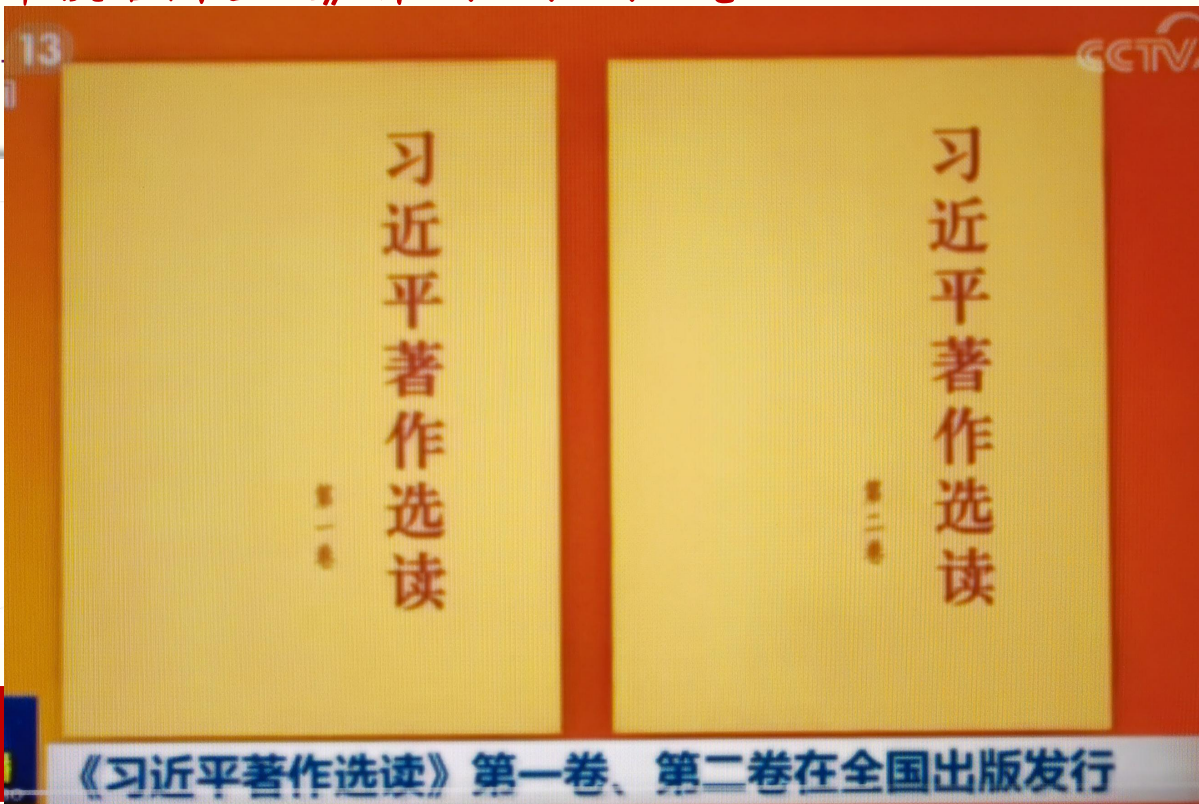 13
CCTV
习近平著作选读
第一卷
习近平著作选读
第二卷
《习近平著作选读》第一卷、第二卷在全国出版发行